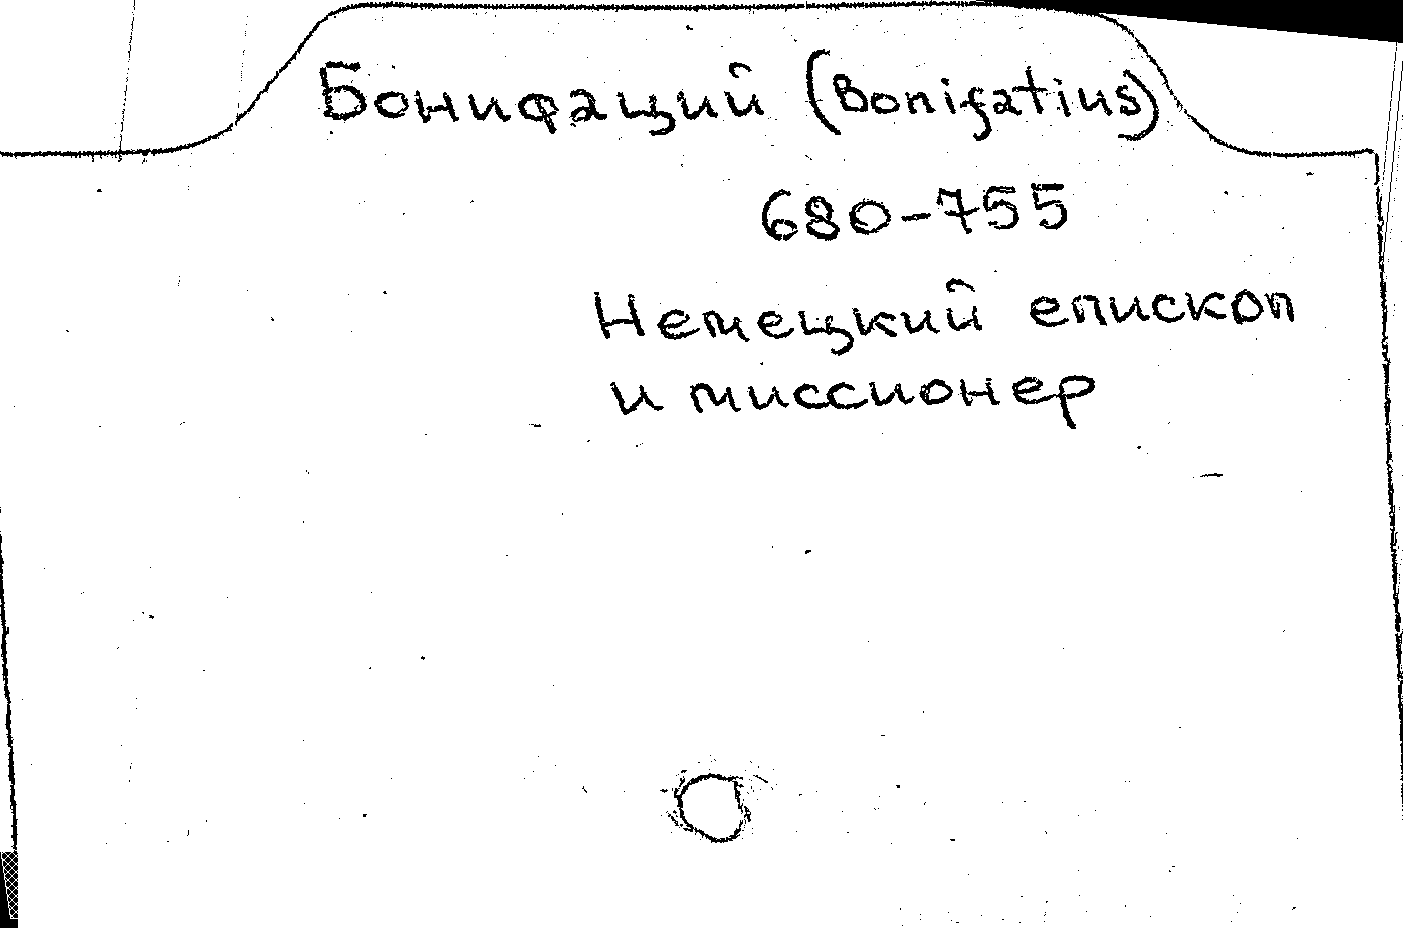 Бонифаций (Bonifatius)
680-755
Немецкий епископ
и миссионер